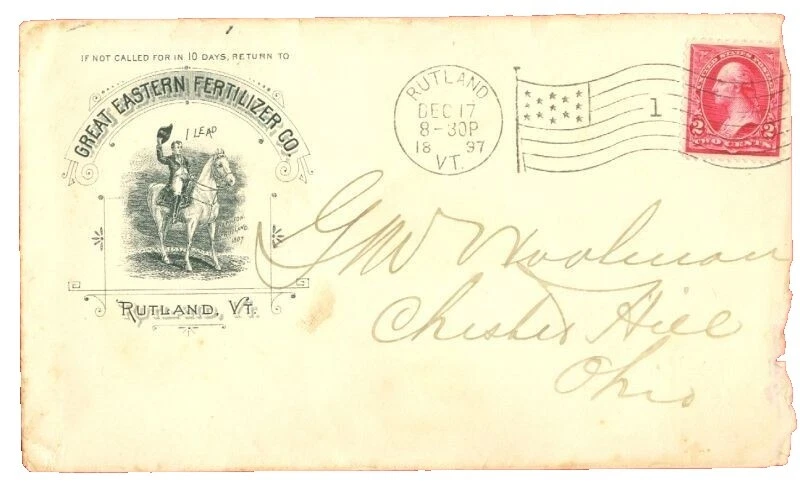 IF NOT CALLED FOR IN 10 DAYS, RETURN TO
GREAT EASTERN FERTILIZER CO.
I LEAD
1897
RUTLAND, VT.
RUTLAND
DEC 17
8-30P
18 97
VT.
1
UNITED STATES POSTAGE
2 2
TWO CENTS
G W Woolman
Chester Hill
Ohio